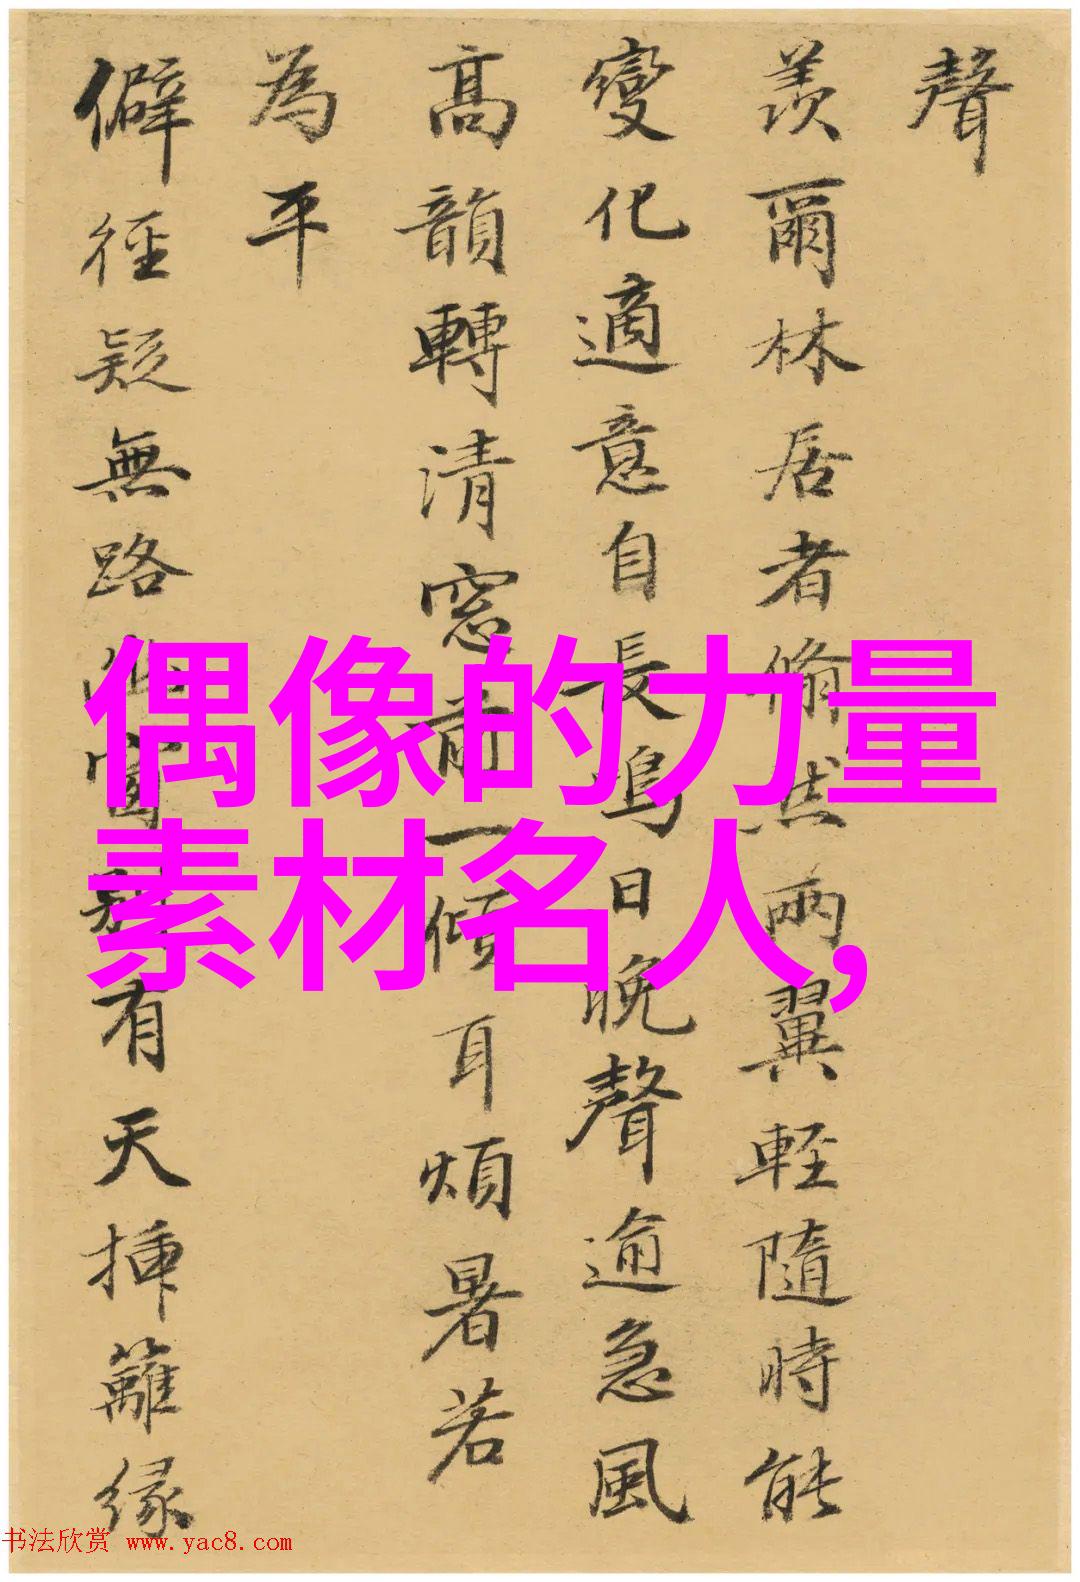 聲
羨爾林居者翛然兩翼輕隨時能
變化適意自長鳴日晚聲逾急風
高韻轉清窓前一傾耳煩暑若
為平
僻徑疑無路幽窗別有天揷籬緣
偶像的力量
素材名人,
书法欣赏 www.yac8.com